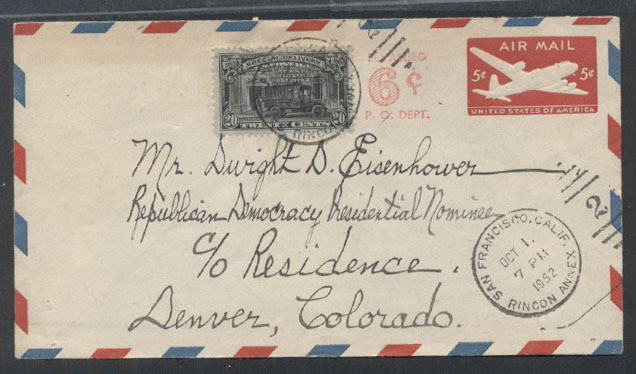 AIR MAIL
5¢ 5¢
UNITED STATES OF AMERICA
6¢
P. O. DEPT.
SPECIAL DELIVERY
20 TWENTY CENTS 20
RINCON ANNEX
Mr. Dwight D. Eisenhower
Republican Democracy Presidential Nominee
c/o Residence.
Denver, Colorado.
SAN FRANCISCO, CALIF.
OCT 1
7 PM
1952
RINCON ANNEX